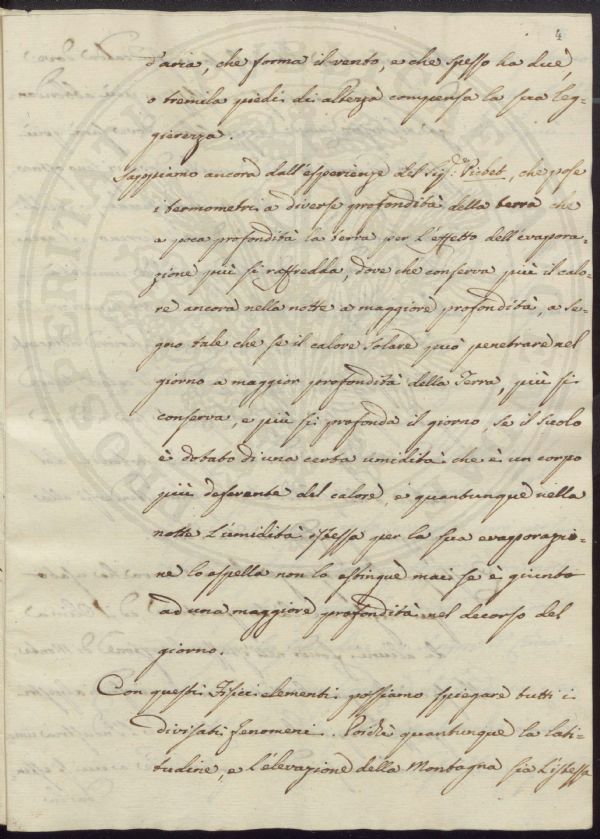 4
d'aria, che forma il vento, e che spesso ha due,
o tremila piedi di altezza compensa la sua leg-
gierezza.
Sappiamo ancora dall'esperienze del Sig:r Pictet, che pose
i termometri a diverse profondità della terra che
a poca profondità la terra per l'effetto dell'evapora-
zione più si raffredda, dove che conserva più il calo-
re ancora nella notte a maggiore profondità, a se-
gno tale che se il calore solare può penetrare nel
giorno a maggior profondità della Terra, più si
conserva, e più si profonda il giorno, se il suolo
è dotato di una certa umidità che è un corpo
più deferente del calore, e quantunque nella
notte l'umidità istessa per la sua evaporazio-
ne lo espella non lo estingue mai se è giunto
ad una maggiore profondità nel decorso del
giorno.
Con questi Fisici elementi possiamo spiegare tutti i
divisati fenomeni. Poichè quantunque la lati-
tudine, e l'elevazione della Montagna sia l'istessa